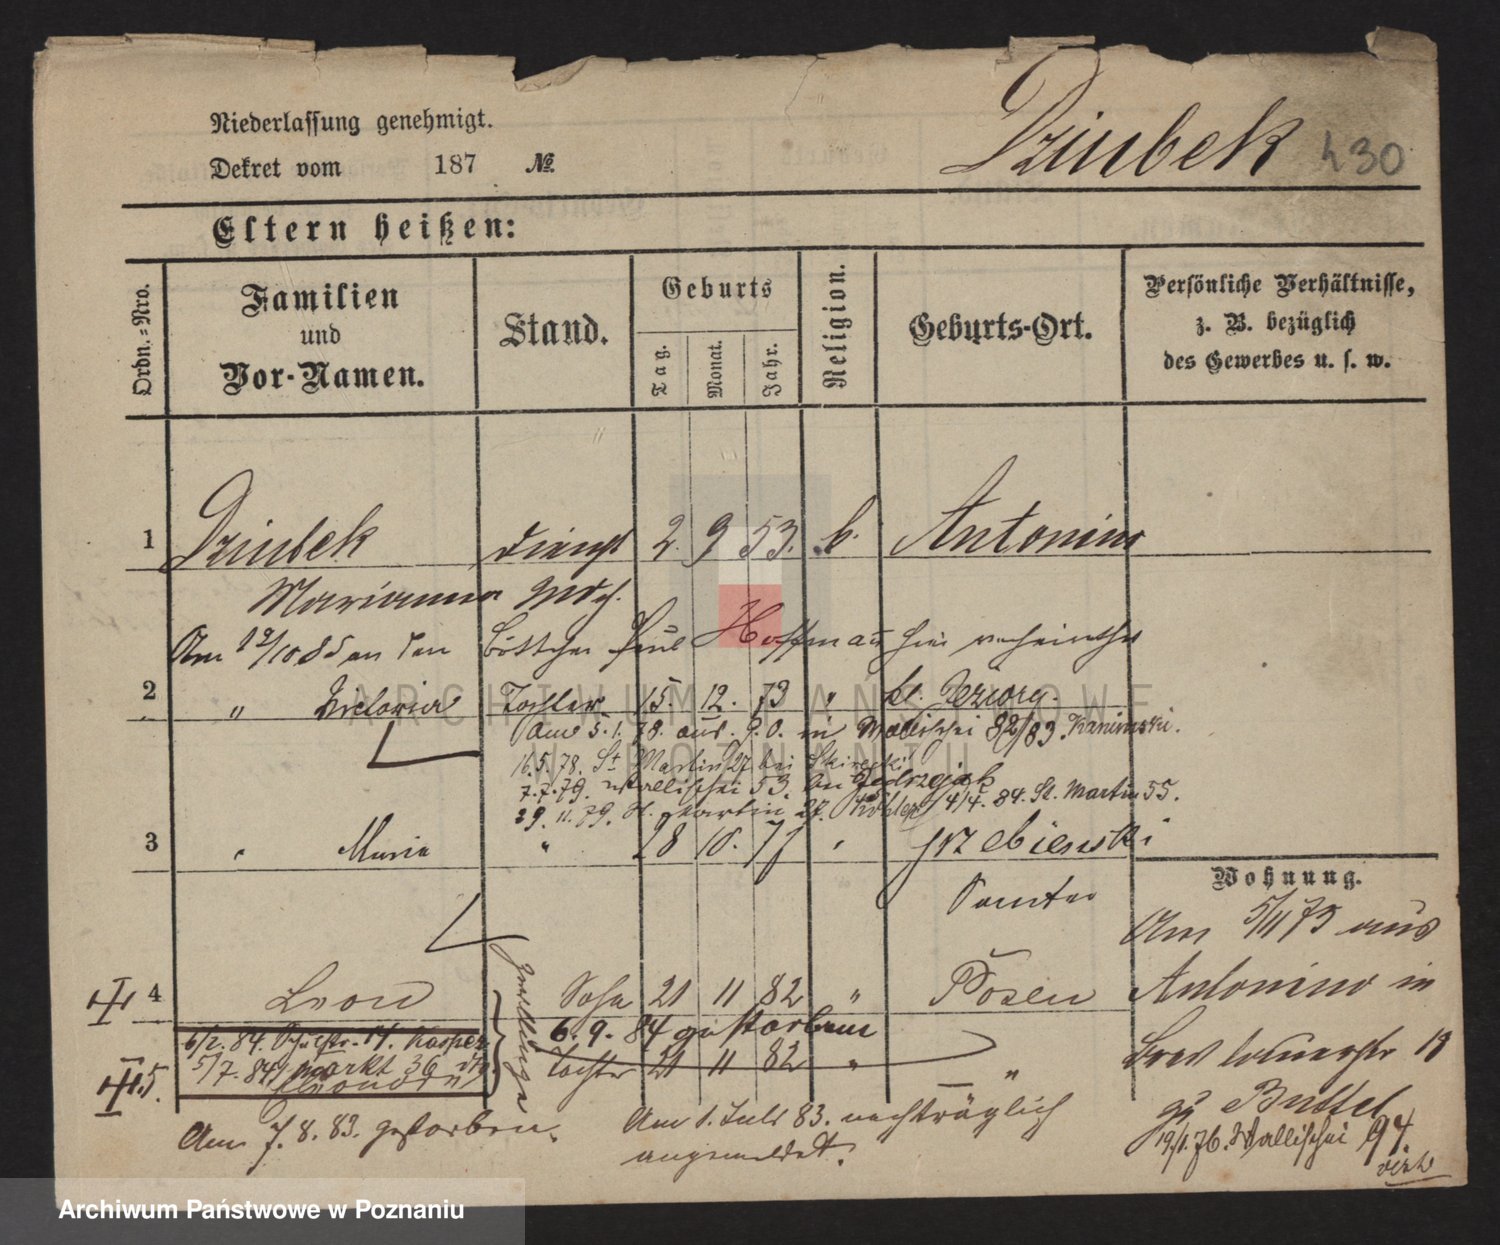 Niederlassung genehmigt.
Dekret vom 187 №
Dziubek 430
Eltern heißen:
Ordn.-Nro.
Familien und Vor-Namen.
Stand.
Geburts
Tag. Monat. Jahr.
Religion.
Geburts-Ort.
Persönliche Verhältnisse,
z. B. bezüglich
des Gewerbes u. s. w.
1 Dziubek Dienst 2. 9 53. k. Antonino
Marianna Mdch.
Am 12/10 85 an den Böttcher Paul Hoffmann hier verheirathet
2 " Victoria Tochter 15. 12. 73 "
Am 5. 1. 78. aus. g. O. in Wallischei 82/83
16.5.78. St Martin 27 bei
7.7.79. Wallischei 53. bei Jędrzejak
29. 11. 79. St. Martin 27. 4/4. 84. St. Martin 55.
3 " Maria " 28 10. 77 "
Samter
Wohnung.
Am 5/11 75 aus
Antonino in
4 Leon Sohn 21 11 82 " Posen
Zwillinge
6. 9. 84 gestorben
6/2. 84. Schulstr. 14.
5/7. 84 Markt 36
5. Tochter 21 11 82 " "
19
Büttel
19/1. 76. Wallischei 94.
Am 7. 8. 83. gestorben.
Am 1. Juli 83. nachträglich
angemeldet.
ARCHIWUM PAŃSTWOWE
W POZNANIU
Archiwum Państwowe w Poznaniu